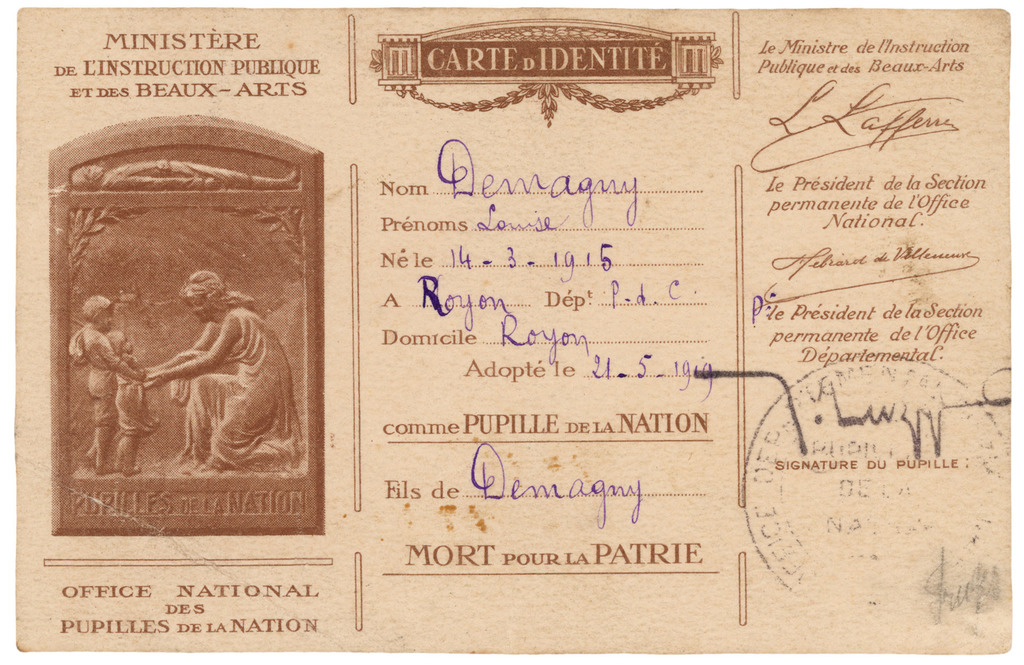 MINISTÈRE
DE L'INSTRUCTION PUBLIQUE
ET DES BEAUX-ARTS
PUPILLES DE LA NATION
OFFICE NATIONAL
DES
PUPILLES DE LA NATION
CARTE D'IDENTITÉ
Nom Demagny
Prénoms Louise
Né le 14-3-1915
A Royon Dépt P.d.C.
Domicile Royon
Adopté le 21-5-1919
comme PUPILLE DE LA NATION
Fils de Demagny
MORT POUR LA PATRIE
Le Ministre de l'Instruction
Publique et des Beaux-Arts
L. Lafferre
Le Président de la Section
permanente de l'Office
National.
Hébrard de Villeneuve
Pr le Président de la Section
permanente de l'Office
Départemental.
SIGNATURE DU PUPILLE :
PUPILLES
DE LA
NATION